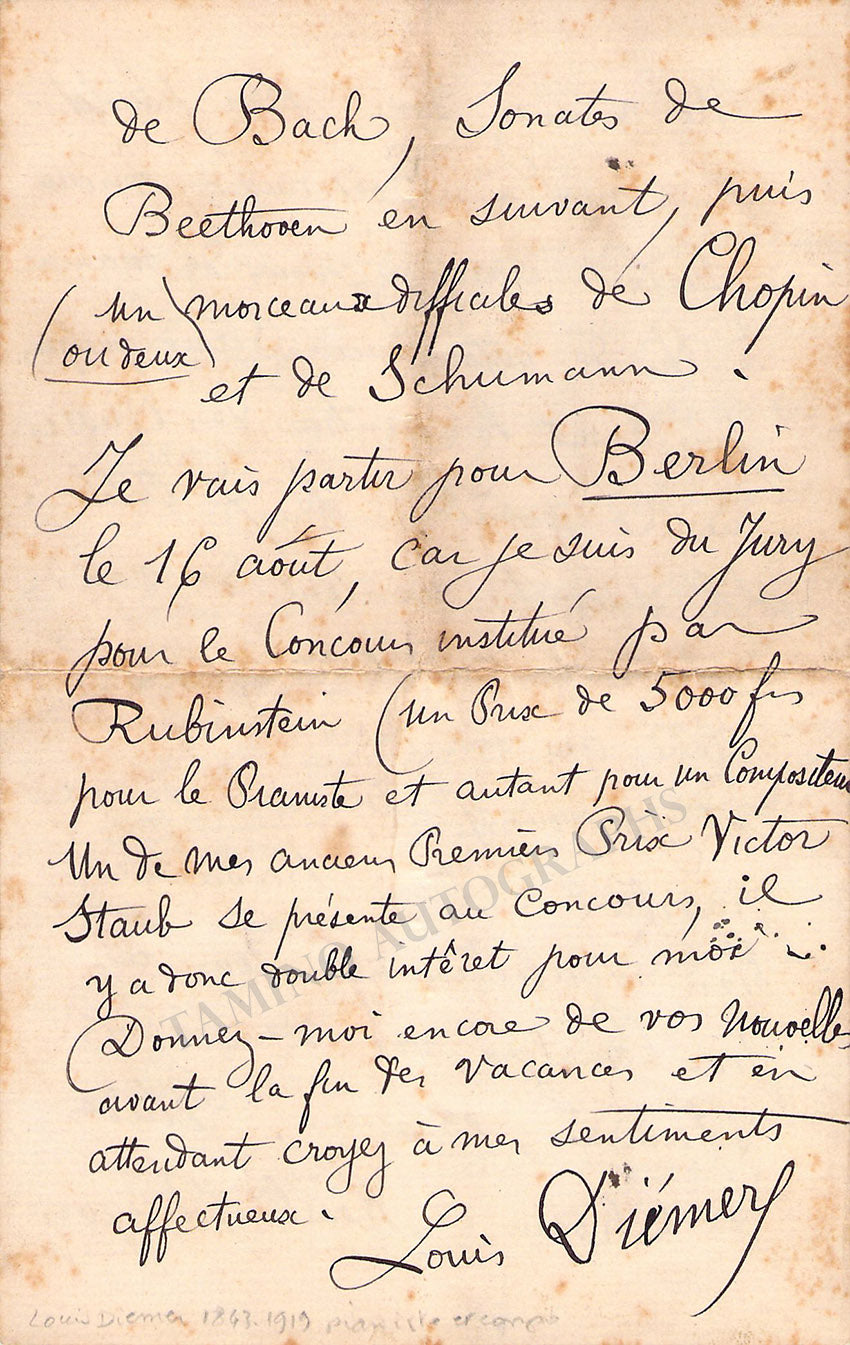 de Bach, Sonates de
Beethoven en suivant, puis
(un morceaux difficiles de Chopin
ou deux)
et de Schumann.
Je vais partir pour Berlin
le 16 août, car je suis du Jury
pour le Concours institué par
Rubinstein (un Prix de 5000 frs
pour le Pianiste et autant pour un Compositeur
Un de mes anciens Premiers Prix Victor
Staub se présente au Concours, il
y a donc double intérêt pour moi.
Donnez-moi encore de vos nouvelles
avant la fin des vacances et en
attendant croyez à mes sentiments
affectueux.
Louis Diémer
Louis Diemer 1843-1919 pianiste et compo
TAMINO AUTOGRAPHS